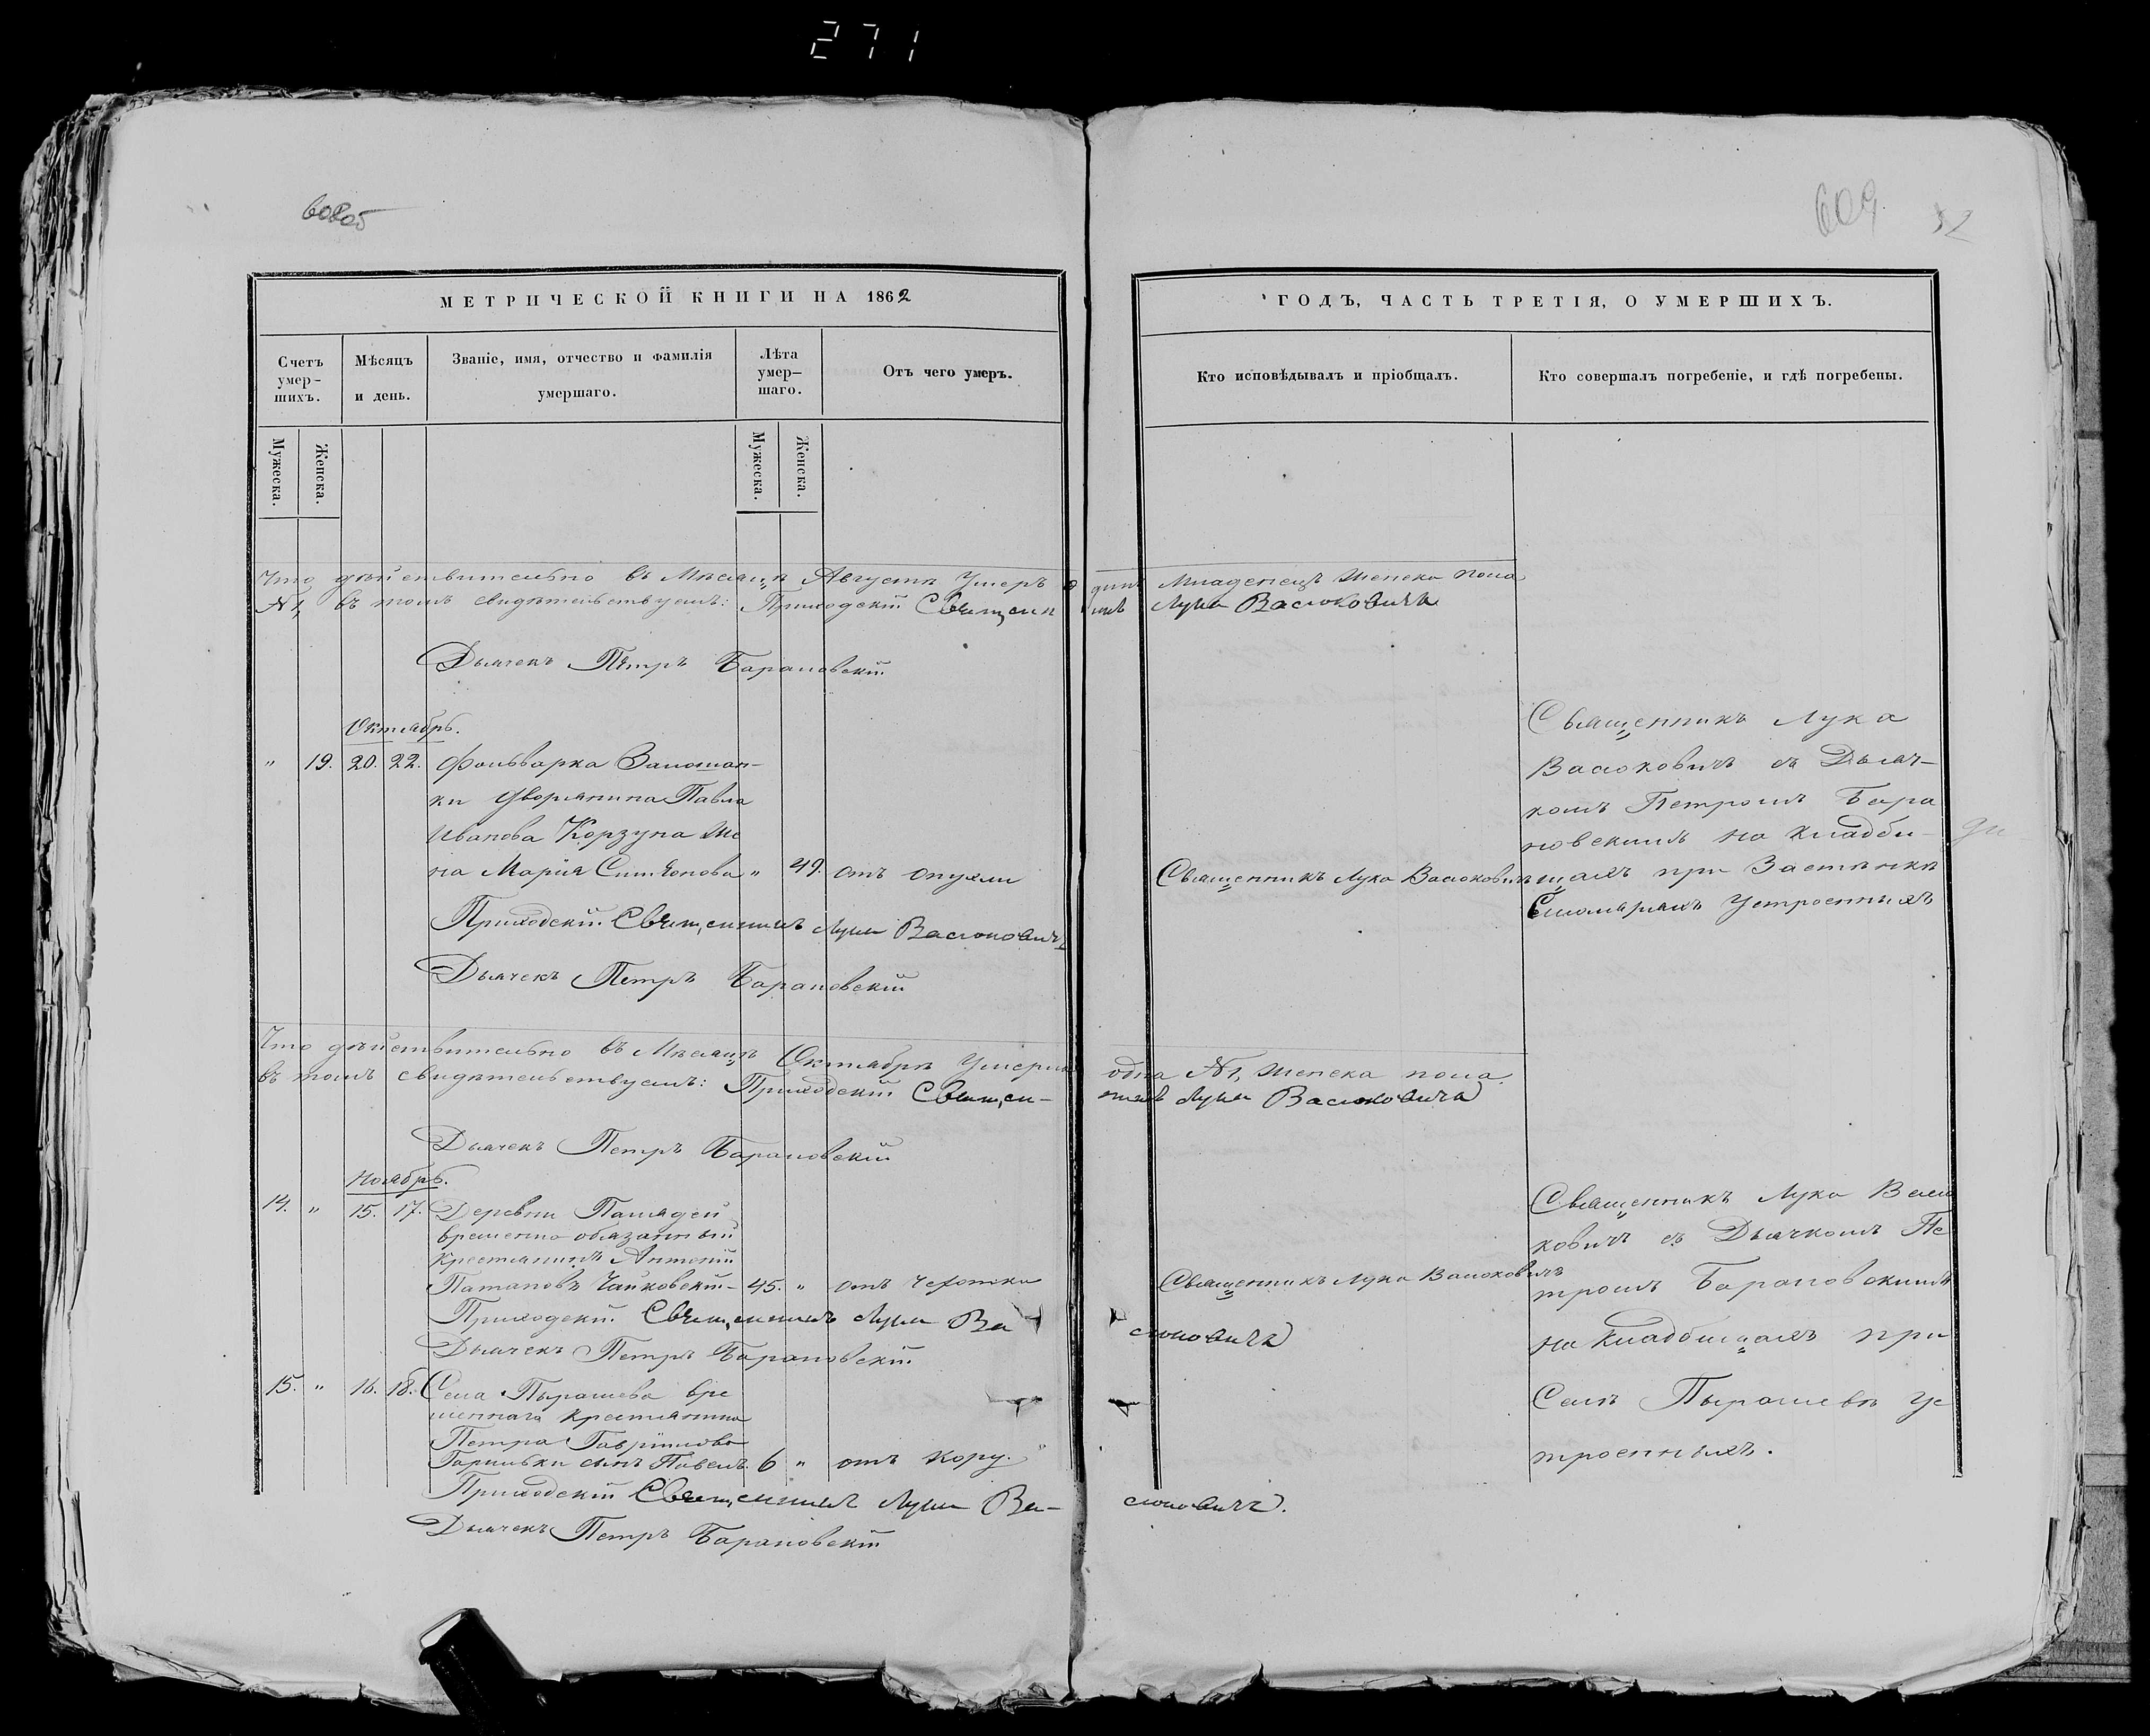 271
608об
609
52
МЕТРИЧЕСКОЙ КНИГИ НА 1862
ГОДЪ, ЧАСТЬ ТРЕТІЯ, О УМЕРШИХЪ.
Счетъ умер-шихъ.
Мѣсяцъ и день.
Званіе, имя, отчество и фамилія умершаго.
Лѣта умер-шаго.
Отъ чего умеръ.
Кто исповѣдывалъ и пріобщалъ.
Кто совершалъ погребеніе, и гдѣ погребены.
Мужеска.
Женска.
Мужеска.
Женска.
Что дѣйствительно въ Мѣсяцѣ Августѣ Умеръ одинъ Младенецъ женска пола
№1, въ томъ свидѣтельствуемъ: Приходскій Священникъ Лука Васюковичъ
Дьячекъ Пѣтръ Барановскій
Октябрь.
" 19. 20. 22. Фольварка
ки Дворянина Павла
Иванова Корзуна Же
на Марія Симѣонова " 49. отъ опухли
Священникъ Лука Васюковичъ
Священникъ Лука
Васюковичъ съ Дьяч-
комъ Петромъ Бара
новскимъ на кладби-
щахъ при Застѣнкѣ
Устроенныхъ
Приходскій Священникъ Лука Васюковичъ
Дьячекъ Петръ Барановскій
Что дѣйствительно въ Мѣсяцѣ Октябрѣ Умерла одна №1, женска пола
въ томъ свидѣтельствуемъ: Приходскій Священ-никъ Лука Васюковичъ
Дьячекъ Петръ Барановскій
Ноябрь.
14. " 15. 17. Деревни
временно обязанный
крестьянинъ Антоній
Патаповъ Чайковскій- 45. " отъ чехотки
Священникъ Лука Васюковичъ
Священникъ Лука Васю
ковичъ съ Дьячкомъ Пе
тромъ Барановскимъ
на кладбищахъ при
Селѣ Пырашевѣ ус
троенныхъ.
Приходскій Священникъ Лука Ва сюковичъ
Дьячекъ Петръ Барановскій
15. " 16. 18. Села Пырашева вре
меннаго крестьянина
Петра Гаврiилова
сынъ Павелъ. 6 " отъ кору.
Приходскій Священникъ Лука Ва-сюковичъ.
Дьячекъ Петръ Барановскій